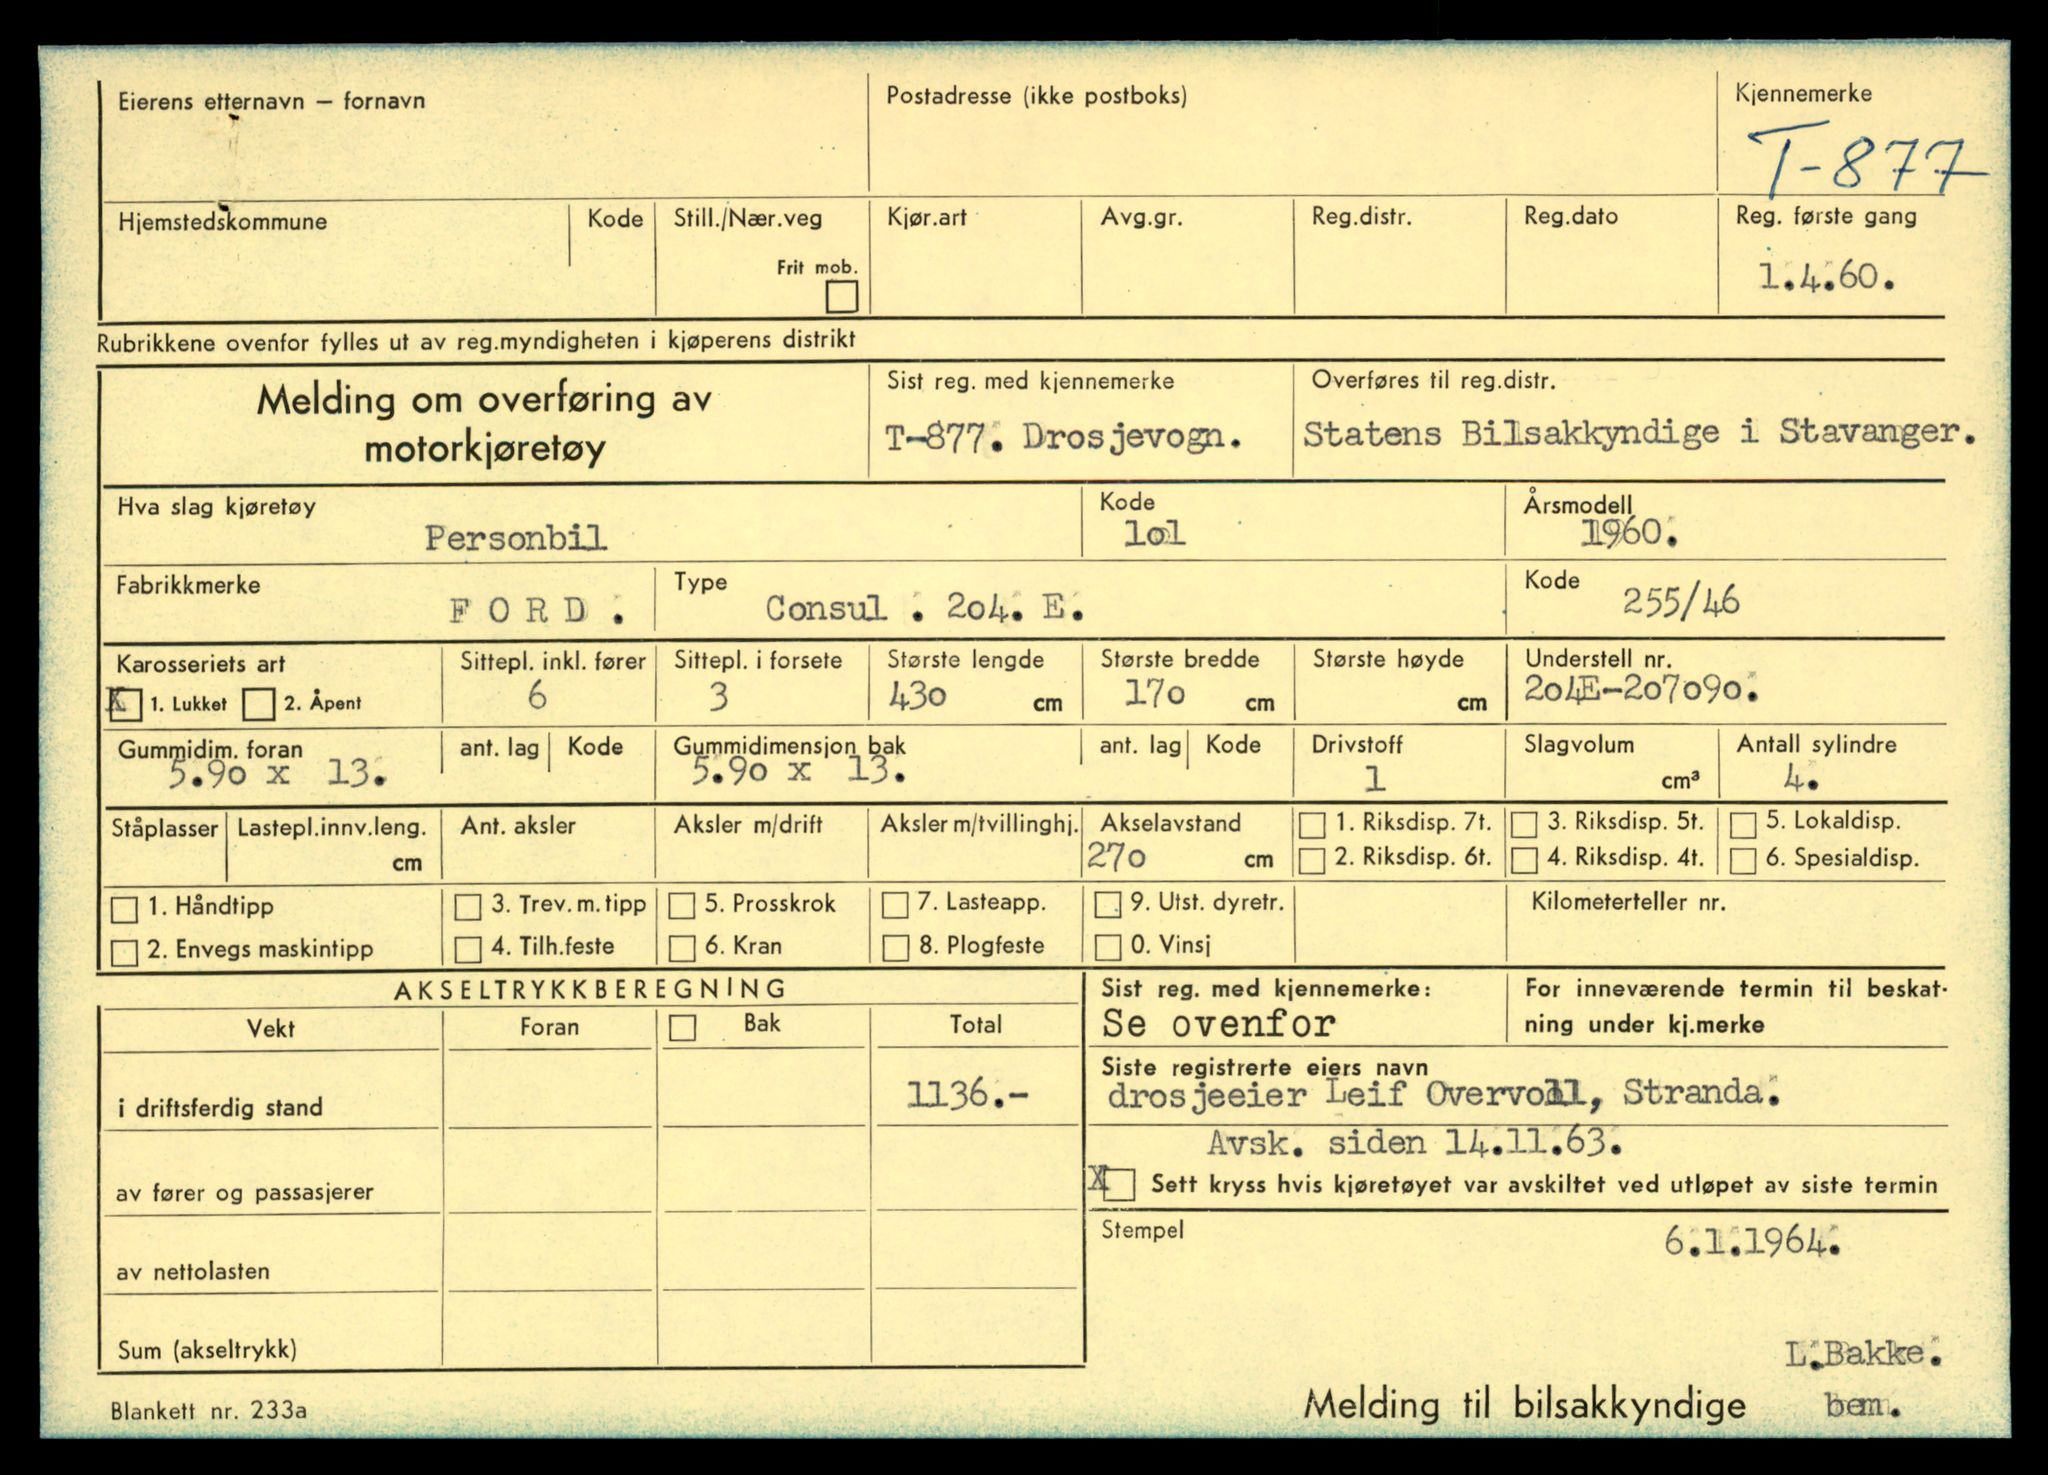 Eierens etternavn – fornavn
Postadresse (ikke postboks)
Kjennemerke
T-877
Hjemstedskommune
Kode
Still./Nær.veg
Frit mob.
Kjør.art
Avg.gr.
Reg.distr.
Reg.dato
Reg. første gang
1.4.60.
Rubrikkene ovenfor fylles ut av reg.myndigheten i kjøperens distrikt
Melding om overføring av
motorkjøretøy
Sist reg. med kjennemerke
T-877. Drosjevogn.
Overføres til reg.distr.
Statens Bilsakkyndige i Stavanger.
Hva slag kjøretøy
Personbil
Kode
lol
Årsmodell
1960.
Fabrikkmerke
F O R D .
Type
Consul . 2o4. E.
Kode
255/46
Karosseriets art
X 1. Lukket 2. Åpent
Sittepl. inkl. fører
6
Sittepl. i forsete
3
Største lengde
43o cm
Største bredde
17o cm
Største høyde
cm
Understell nr.
2o4E-2o7o9o.
Gummidim. foran
5.9o x 13.
ant. lag
Kode
Gummidimensjon bak
5.9o x 13.
ant. lag
Kode
Drivstoff
1
Slagvolum
cm³
Antall sylindre
4.
Ståplasser
Lastepl.innv.leng.
cm
Ant. aksler
Aksler m/drift
Aksler m/tvillinghj.
Akselavstand
27o cm
1. Riksdisp. 7t.
2. Riksdisp. 6t.
3. Riksdisp. 5t.
4. Riksdisp. 4t.
5. Lokaldisp.
6. Spesialdisp.
1. Håndtipp
2. Envegs maskintipp
3. Trev. m. tipp
4. Tilh.feste
5. Prosskrok
6. Kran
7. Lasteapp.
8. Plogfeste
9. Utst. dyretr.
0. Vinsj
Kilometerteller nr.
AKSELTRYKKBEREGNING
Vekt
Foran
Bak
Total
i driftsferdig stand
1136.-
av fører og passasjerer
av nettolasten
Sum (akseltrykk)
Sist reg. med kjennemerke:
Se ovenfor
For inneværende termin til beskat-
ning under kj.merke
Siste registrerte eiers navn
drosjeeier Leif Overvoll, Stranda.
Avsk. siden 14.11.63.
X Sett kryss hvis kjøretøyet var avskiltet ved utløpet av siste termin
Stempel
6.1.1964.
L.Bakke.
bem.
Melding til bilsakkyndige
Blankett nr. 233a